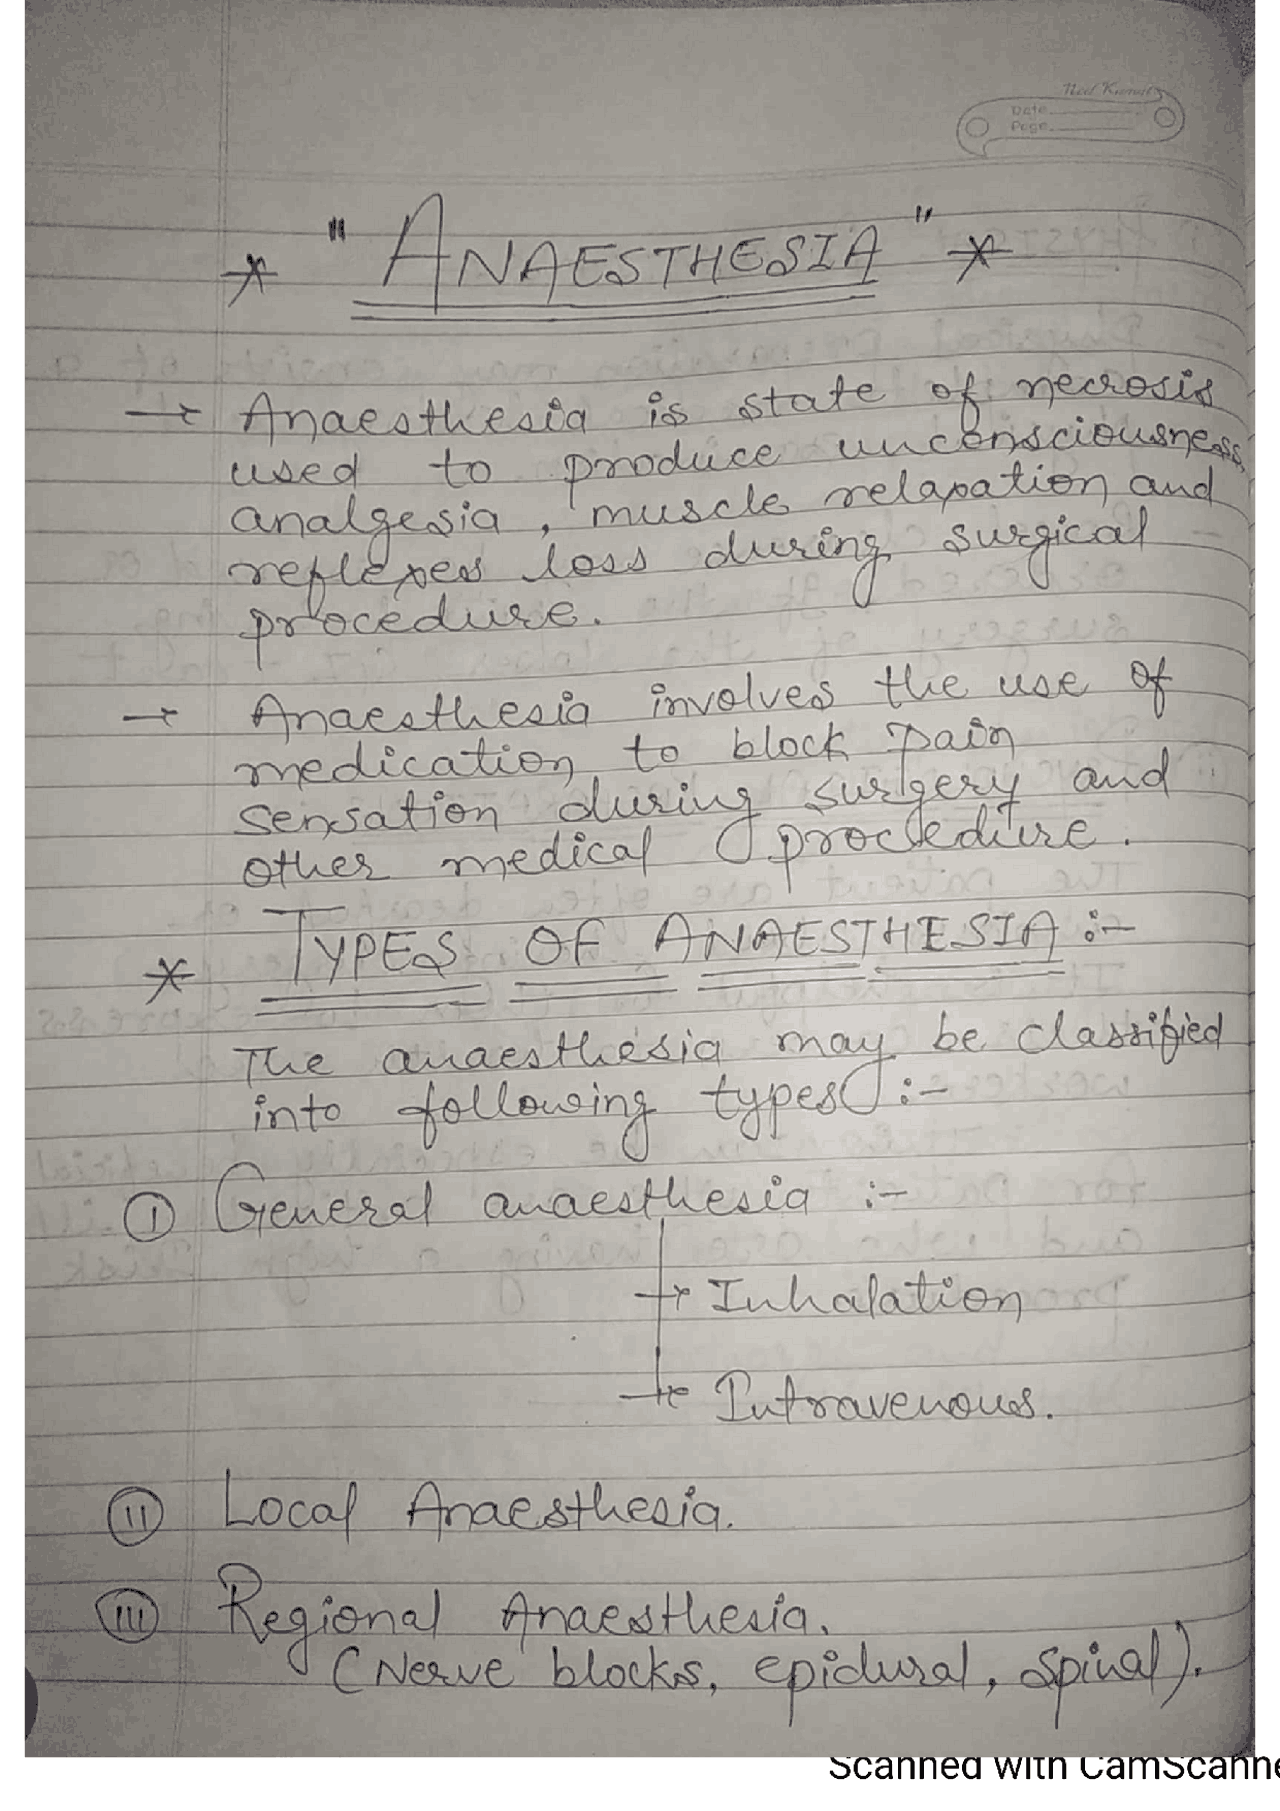 Neel Kamal
Date
Page
* "ANAESTHESIA" *
→ Anaesthesia is state of necrosis
used to produce unconsciousness,
analgesia, muscle relaxation and
reflexes loss during surgical
procedure.
→ Anaesthesia involves the use of
medication to block pain
sensation during surgery and
other medical procedure.
* TYPES OF ANAESTHESIA :-
The anaesthesia may be classified
into following types :-
① General anaesthesia :-
→ Inhalation
→ Intravenous.
(II) Local Anaesthesia.
(III) Regional Anaesthesia.
(Nerve blocks, epidural, Spinal).
Scanned with CamScanne